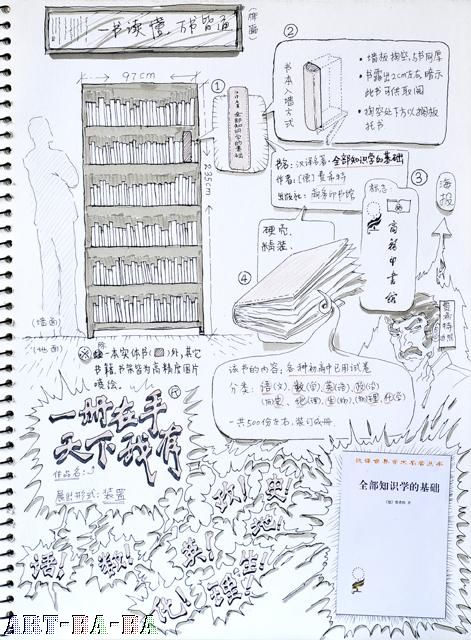 一书读懂，万书皆通
(牌匾)
97cm
235cm
①
汉译名著·全部知识学的基础
②
书本入墙方式
• 墙板掏空，与书同厚
• 书露出2cm左右，暗示此书可供取阅
• 掏空处下方以搁板托书
书名：汉译名著·全部知识学的基础
作者：[德]费希特
出版社：商务印书馆
③
海报
标志：
商务印书馆
硬壳，精装。
④
费希特
(墙面)
(地面)
一本实体书( )外，其它书籍、书架皆为高精度图片喷绘。
该书的内容：各种初高中已用试卷
分类：语(文)、数(学)、英(语)、政(治)
(历)史、地(理)、生(物)、(物)理、化(学)
一共500份左右，装订成册。
一册在手
天下我有
作品名：
展出形式：装置
政！
史！
地！
语！
数！
英！
化！
理！
生！
汉译世界学术名著丛书
全部知识学的基础
[德] 费希特 著
ART-BA-BA